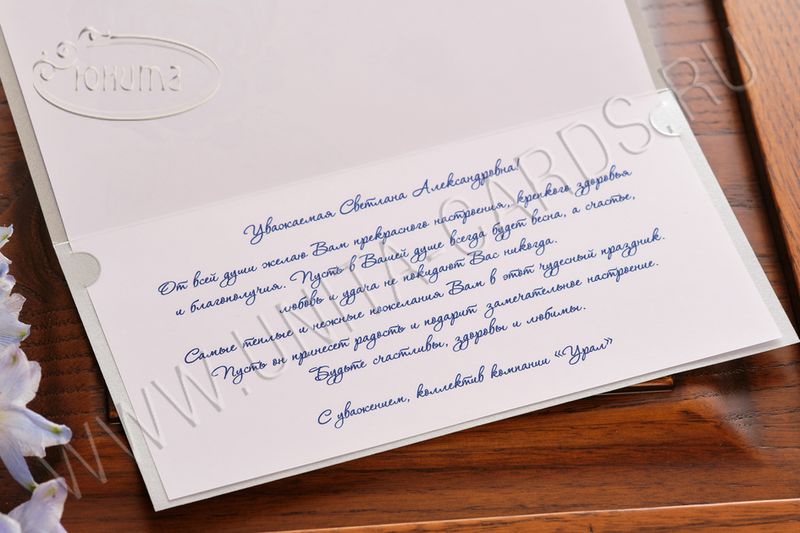 Юнита
WWW.UNITA-CARDS.RU
Уважаемая Светлана Александровна!
От всей души желаю Вам прекрасного настроения, крепкого здоровья
и благополучия. Пусть в Вашей душе всегда будет весна, а счастье,
любовь и удача не покидают Вас никогда.
Самые теплые и нежные пожелания Вам в этот чудесный праздник.
Пусть он принесет радость и подарит замечательное настроение.
Будьте счастливы, здоровы и любимы.
С уважением, коллектив компании «Урал»